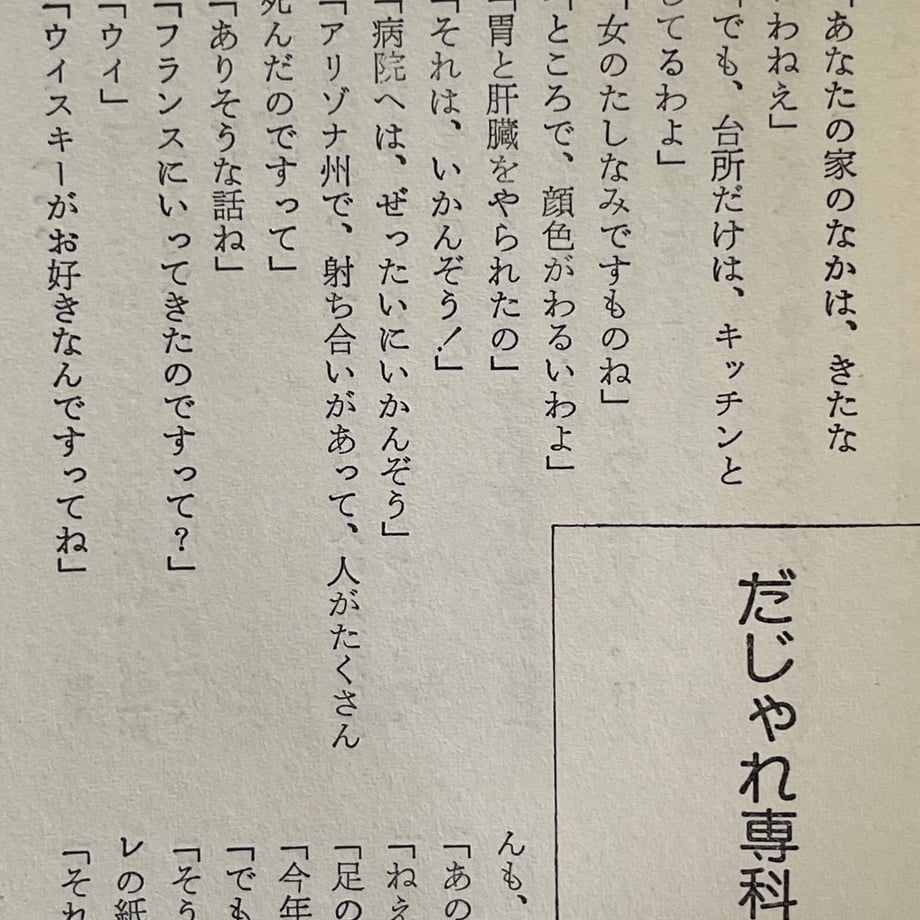 「あなたの家のなかは、きたな
いわねえ」
「でも、台所だけは、キッチンと
してるわよ」
「女のたしなみですものね」
「ところで、顔色がわるいわよ」
「胃と肝臓をやられたの」
「それは、いかんぞう!」
「病院へは、ぜったいにいかんぞう」
「アリゾナ州で、射ち合いがあって、人がたくさん
死んだのですって」
「ありそうな話ね」
「フランスにいってきたのですって?」
「ウイ」
「ウイスキーがお好きなんですってね」
だじゃれ専科
んも、
「あの
「ねえ
「足の
「今年
「でも
「そう
レの紙
「それ